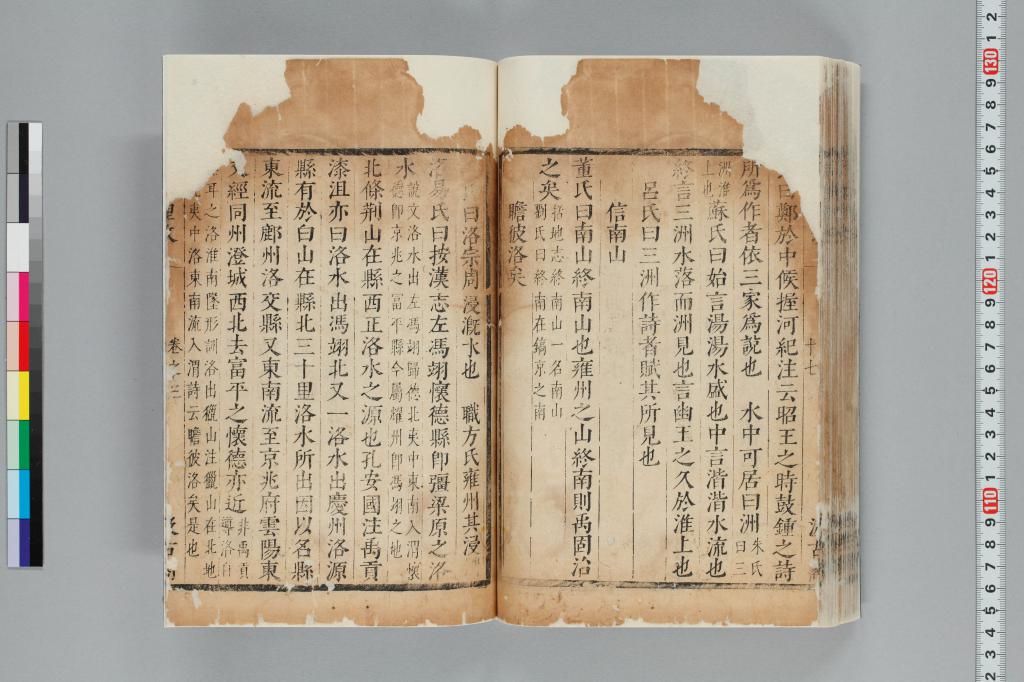 曰鄭於中候握河紀注云昭王之時鼓鍾之詩
所爲作者依三家爲說也 水中可居曰洲朱氏曰三
洲淮上也蘇氏曰始言湯湯水盛也中言湝湝水流也
終言三洲水落而洲見也言幽王之久於淮上也
呂氏曰三洲作詩者賦其所見也
信南山
董氏曰南山終南山也雍州之山終南則禹固治
之矣括地志終南山一名南山劉氏曰終南在鎬京之南
瞻彼洛矣
氏曰洛宗周浸漑水也 職方氏雍州其浸
洛易氏曰按漢志左馮翊懷德縣卽彊梁原之洛
水說文洛水出左馮翊歸德北夷中東南入渭懷德卽京兆之富平縣今屬耀州卽馮翊之地
北條荆山在縣西正洛水之源也孔安國注禹貢
漆沮亦曰洛水出馮翊北又一洛水出慶州洛源
縣有於白山在縣北三十里洛水所出因以名縣
東流至鄜州洛交縣又東南流至京兆府雲陽東
經同州澄城西北去富平之懷德亦近非禹貢導洛自
耳之洛淮南墜形訓洛出獵山注獵山在北地
夷中洛東南流入渭詩云瞻彼洛矣是也
卷之三